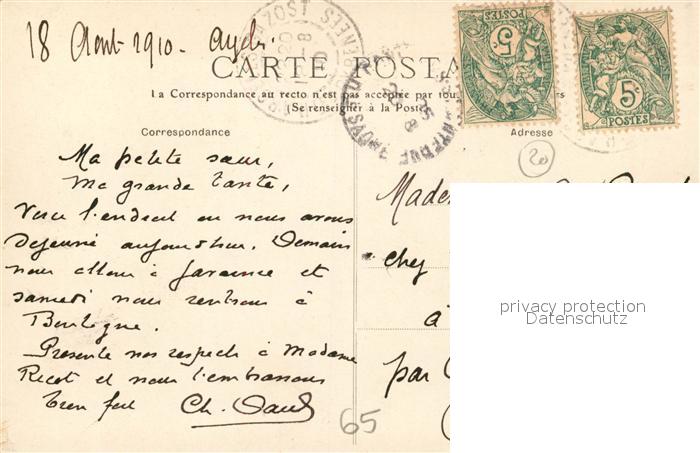 18 Aout 1910 -
CARTE POSTA
La Correspondance au recto n'est pas acceptée par tou
(Se renseigner à la Poste)
Correspondance
Adresse
20
5
POSTES
5
POSTES
Ma petite sœur,
Ma grande tante,
Voici l'endroit ou nous avons
dejeuné aujourd'hui. Demain
nous allons à et
samedi nous rentrons à
Boulogne.
Presente nos respects à Madame
Ricot et nous t'embrassons
bien fort Ch.
65
Madem
chez
à
par
privacy protection
Datenschutz